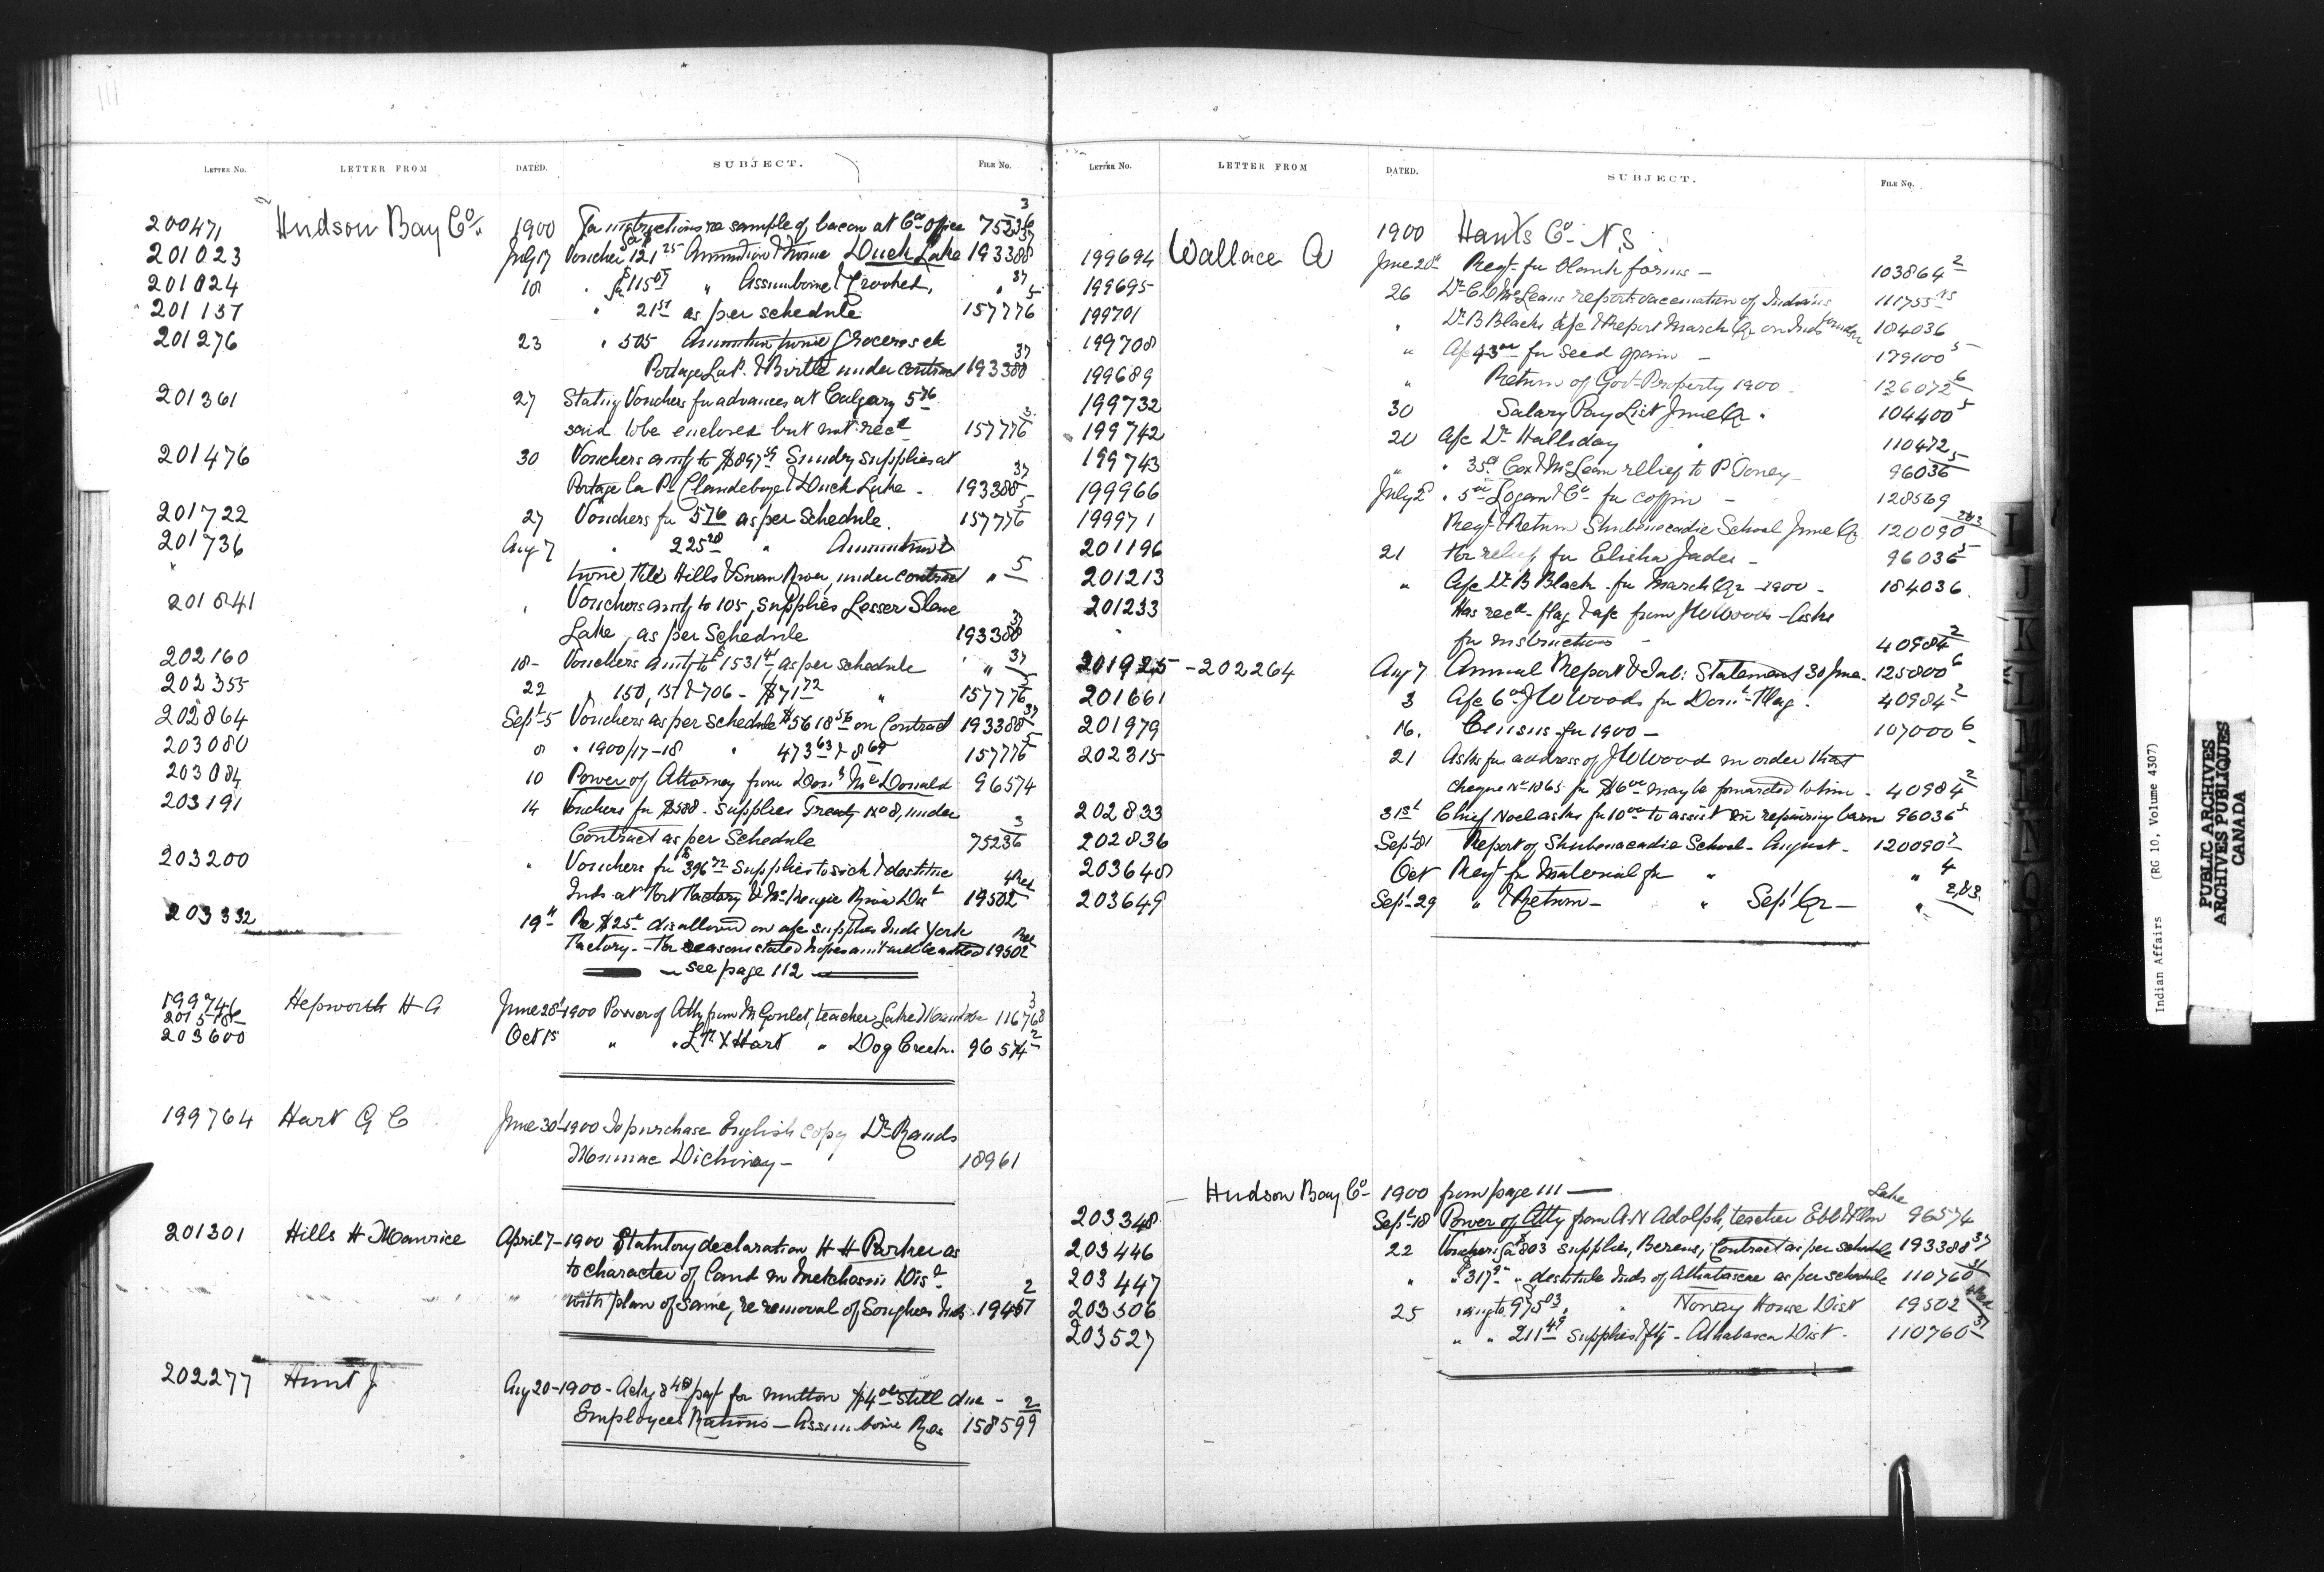 111
LETTER No. LETTER FROM DATED. SUBJECT. FILE No.
200471 Hudson Bay Co. 1900 For instructions re sample of bacon at Co's office 75236 3
201023 July 17 Voucher for 121 25 Ammunition & twine Duck Lake 193388 37
201024 18 " for $115 " Assiniboine & Crooked, " 37
201137 " 21 as per schedule 157776 5
201276 23 " 505 Ammunition twine Groceries etc
Portage La P. & Birtle under contract 193388 37
201361 27 Stating Vouchers for advances at Calgary 5 76
said to be enclosed but not recd 157776 5
201476 30 Vouchers amtg to $897 Sundry supplies at
Portage La P. Clandeboye & Duck Lake - 193388 37
201722 27 Vouchers for 576 as per Schedule. 157776 5
201736 Aug 7 " 225 20 " Ammunition &
" twine, File Hills & Swan River, under contract " 5
201841 " Vouchers amtg to 105, supplies Lesser Slave
Lake, as per Schedule 193388 37
202160 18- Vouchers amtg to $1531 41 as per schedule " 37
202355 22 " 150, 151 & 706 - $71 72 " 157776 5
202864 Sept 5 Vouchers as per schedule $5618 56 on Contract 193388 37
203080 8 " 1900/17-18 " 473 63 & 8 65 157776 5
203084 10 Power of Attorney from Don. McDonald 96574
203191 14 Vouchers for $588 - supplies Treaty No 8, under
Contract as per Schedule 75236 3
203200 " Vouchers for $396 72 Supplies to sick & destitute
Inds at Fort Factory & McKenzie River Dist 19502
203332 19" Re $25 disallowed on a/c supplies Inds York
Factory - For reasons stated hopes amt will be 19502
see page 112
199746 Hepworth H A June 28-1900 Power of Atty from M Goulet, teacher Lake Manitoba 116768 3
203600 Oct 15 " " Hart " Dog Creek. 96574 2
199764 Hart G C June 30-1900 To purchase English copy Dr Rands
Micmac Dictionary - 18961
201301 Hills H Maurice April 7-1900 Statutory declaration H H as
to character of land in Metchosin Dist
with plan of same, re removal of Songhees Inds. 19457 2
202277 Hunt J. Aug 20-1900 - Ackg 8 40 payt for mutton $4 00 still due -
Employees Rations - Assiniboine Res 158599 2
LETTER No. LETTER FROM DATED. SUBJECT. FILE No.
1900 Hants Co. N.S.
199694 Wallace A June 20 Reqt for blank forms - 103864 2
199695 26 Dr C D McLeans report vaccination of Indians 111755
199701 " Dr B Blacks a/c & Report March Qr on Inds 184036
199708 " A/c 43 00 for seed grain - 179100 5
199689 " Return of Govt Property 1900 - 126072 6
199732 30 Salary Pay List June Qr. 104400 5
199742 20 A/c Dr Halliday 110472
199743 " " 35 Cox & McLean relief to P Toney - 96036 5
199966 July 2 " 5 00 Logan & Co for coffin - 128569
199971 Reqt & Return Shubenacadie School June Qr 120090 2&3
201196 21 For relief for Elisha Jadis - 96036 5
201213 " A/c Dr B Black for March Qr 1900 - 184036
201233 Has recd flag & a/c from J W Woods - Asks
for instructions - 40984 2
201925 - 202264 Aug 7 Annual Report & Tab: Statement 30 June. 125800 6
201661 3 A/c 6 00 J W Woods for Domn Flag. 40984 2
201979 16. Census for 1900 - 107000 6
202315 21 Asks for address of J W Wood in order that
cheque No 1065 for $6 00 may be forwarded to him - 40984 2
202833 31st Chief Noel asks for 10 00 to assist in repairing barn 96036 5
202836 Sept 81 Report of Shubenacadie School - August - 120090 3
203648 Oct Reqt for Material for " " 4
203649 Sept 29 " & Return - " Sept Qr - " 2&3
Hudson Bay Co - 1900 from page 111 -
203348 Sept 18 Power of Atty from A N Adolph, teacher Ebb & Flow Lake 96574
203446 22 Vouchers for $803 supplies, Berens, Contract as per schedule 193388 37
203447 " " $317 " destitute Inds of Athabasca as per schedule 110760 37
203506 25 " amtg to 975 03, " Norway House Dist 19502
203527 " " 211 49 supplies - Athabasca Dist. 110760 37
I
J
K
L
M
N
Indian Affairs (RG 10, Volume 4307)
PUBLIC ARCHIVES
ARCHIVES PUBLIQUES
CANADA